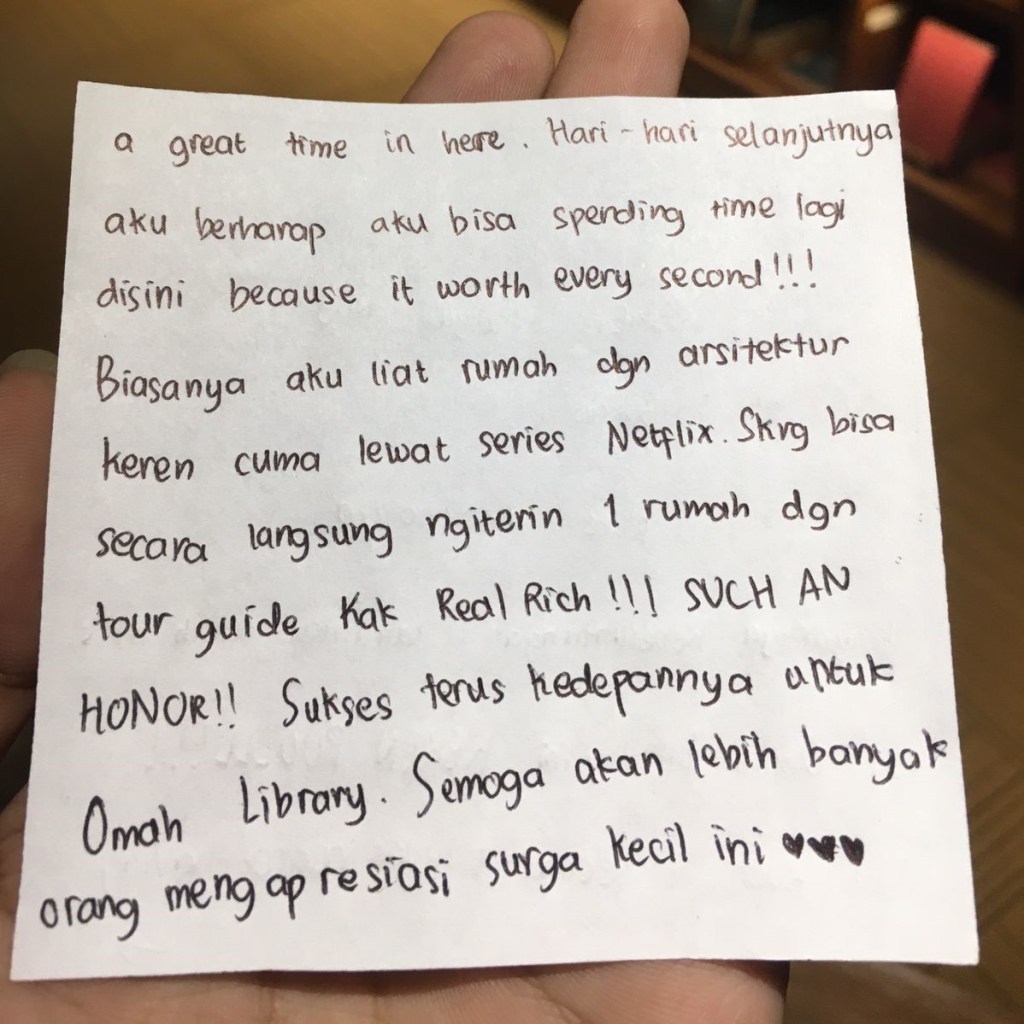 a great time in here. Hari-hari selanjutnya
aku berharap aku bisa spending time lagi
disini because it worth every second!!!
Biasanya aku liat rumah dgn arsitektur
keren cuma lewat series Netflix. Skrg bisa
secara langsung ngiterin 1 rumah dgn
tour guide Kak Real Rich!!! SUCH AN
HONOR!! Sukses terus kedepannya untuk
Omah Library. Semoga akan lebih banyak
orang mengapresiasi surga kecil ini ♥♥♥